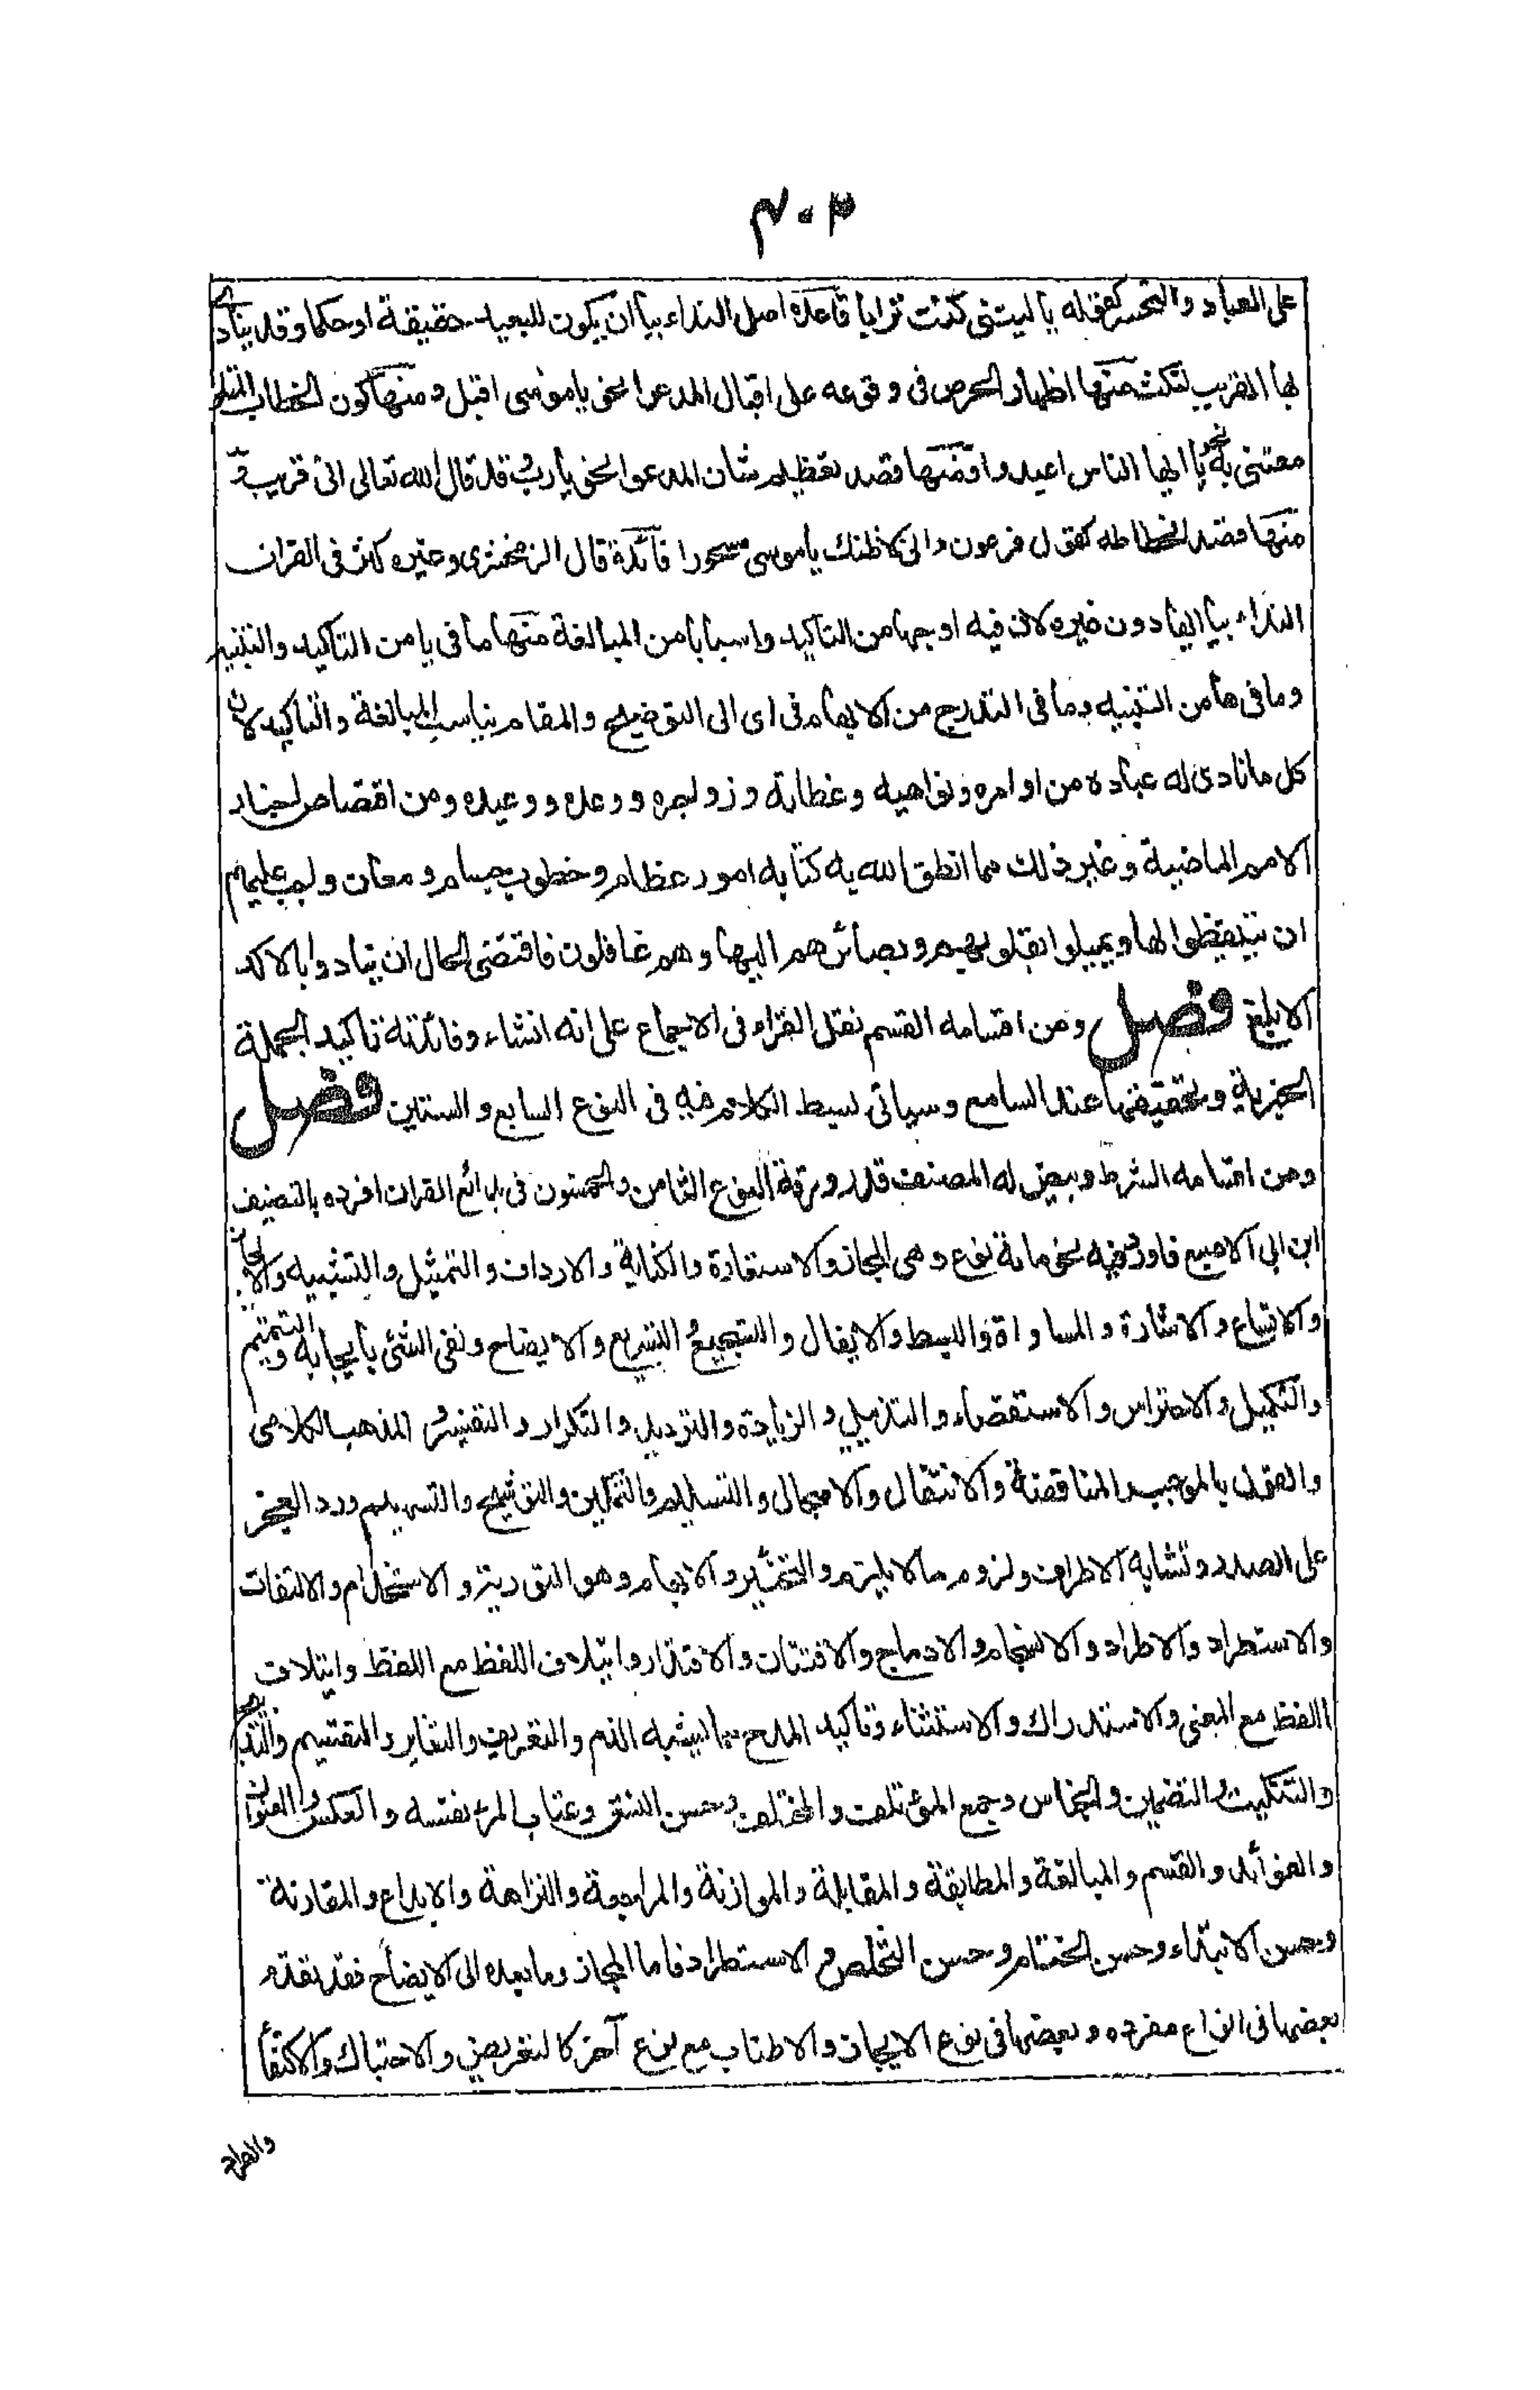 ٣٠٢
على العباد والتحسر كقوله يا ليتنى كنت ترابا قاعدة اصل النداء بيا ان يكون للبعيد حقيقة او حكما وقد ينادى
بها القريب لنكث منها اظهار الحرص فى وقوعه على اقبال المدعو نحو يا موسى اقبل ومنها كون الخطاب المتلو
معتنى به نحو يا ايها الناس اعبدوا ومنها قصد تعظيم شان المدعو نحو يا رب وقد قال الله تعالى انى قريب و
منها قصد انحطاطه كقول فرعون وانى لاظنك يا موسى مسحورا فائدة قال الزمخشرى وغيره كثر فى القران
النداء بيا ايها دون غيره لان فيه اوجها من التاكيد واسبابا من المبالغة منها ما فى يا من التاكيد والتنبيه
وما فى ها من التنبيه وما فى التدرج من الابهام فى اى الى التوضيح والمقام يناسب المبالغة والتاكيد لان
كل ما نادى له عباده من اوامره ونواهيه وعظاته وزواجره ووعده ووعيده ومن اقتصاص اخبار
الامم الماضية وغير ذلك مما انطق الله به كتابه امور عظام وخطوب جسام ومعان واجب عليهم
ان يتيقظوا لها ويميلوا بقلوبهم وبصائرهم اليها وهم غافلون فاقتضى الحال ان ينادوا بالاكد
الابلغ فصل ومن اقسامه القسم نقل القراء فى الاجماع على انه انشاء وفائدته تاكيد الجملة
الخبرية وتحقيقها عند السامع وسياتى بسيط الكلام فيه فى النوع السابع والستين فصل
ومن اقسامه الشرط وبيض له المصنف قدر ورقة النوع الثامن والخمسون فى بدائع القران افرده بالتصنيف
ابن ابى الاصبع فاورد فيه نحو مائة نوع وهى المجاز والاستعارة والكناية والارداف والتمثيل والتشبيه والايجاز
والاتساع والاشارة والمساواة والبسط والايغال والتسجيع و التشريع والايضاح ونفى الشئ بايجابه والتتميم
والتكميل والاحتراس والاستقصاء والتذييل والزيادة والترديد والتكرار والتفسير و المذهب الكلامى
والقول بالموجب والمناقضة والانتقال والاسجال والتسليم والتمكين والتوشيح والتسهيم ورد العجز
على الصدر وتشابه الاطراف ولزوم ما لا يلزم والتخيير والابهام وهو التورية والاستخدام والالتفات
والاستطراد والاطراد والانسجام والادماج والافتتان والاقتدار وايتلاف اللفظ مع اللفظ وايتلاف
اللفظ مع المعنى والاستدراك والاستثناء وتاكيد المدح بما يشبه الذم والتعريض والتغاير والتقسيم والتدبيج
والتنكيت والتضمين والجناس وجمع المؤتلف والمختلف وحسن النسق وعتاب المرء نفسه والعكس والعنوان
والفوائد والقسم والمبالغة والمطابقة والمقابلة والموازنة والمراجعة والنزاهة والابداع والمقارنة
وحسن الابتداء وحسن الختام وحسن التخلص و الاستطراد فاما المجاز وما بعده الى الايضاح فقد تقدم
بعضها فى انواع مفرده وبعضها فى نوع الايجاز والاطناب مع نوع آخر كالتعريض والاحتباك والاكتفا
والطرد